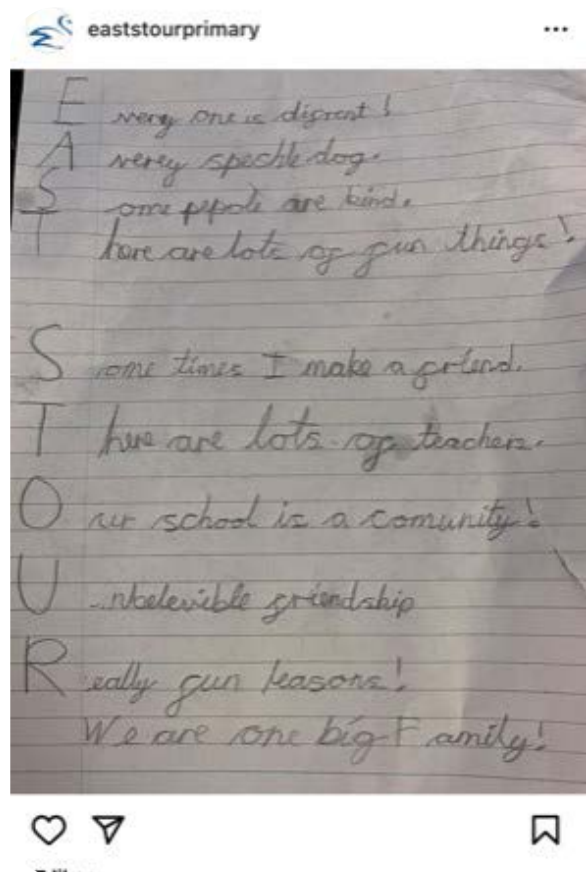 eaststourprimary
Every one is difrent!
A verey spechle dog.
Some pepole are kind.
There are lots of fun things!
Some times I make a friend.
There are lots of teachers.
Our school is a comunity!
Unbelevible friendship
Really fun leasons!
We are one big Family!